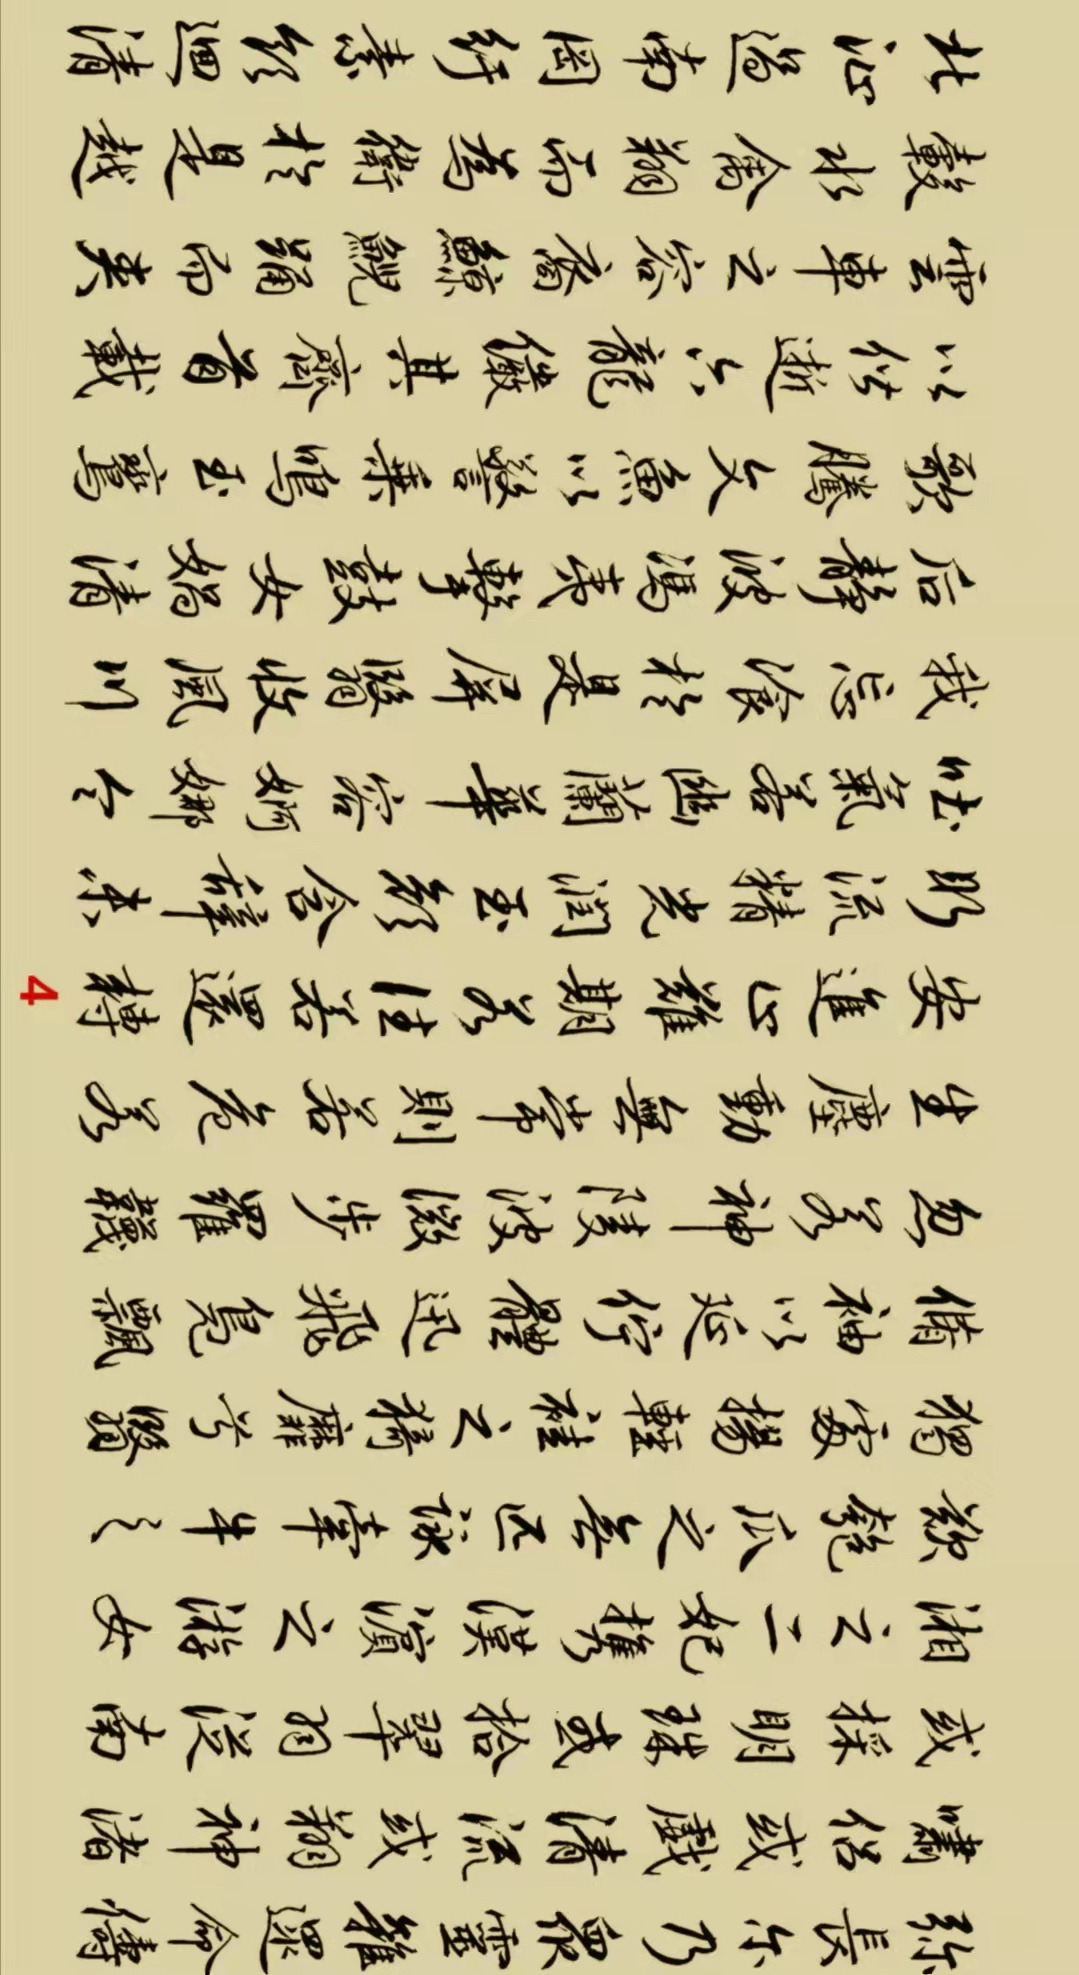 弥長尔乃眾靈雜遝命儔
嘯侶或戲清流或翔神渚
或採明珠或拾翠羽從南
湘之二妃攜漢濱之游女
歎匏瓜之無匹詠牽牛之
獨處揚輕袿之猗靡兮翳
脩袖以延佇體迅飛鳧飄
忽若神陵波微步羅韈
生塵動無常則若危若
安進止難期若往若還轉
眄流精光潤玉顏含辭未
吐氣若幽蘭華容婀娜令
我忘湌於是屏翳收風川
后靜波馮夷擊鼓女媧清
歌騰文魚以警乘鳴玉鸞
以偕逝六龍儼其齊首載
雲車之容裔鯨鯢踊而夾
轂水禽翔而為衛於是越
北沚過南岡紆素領迴清
4